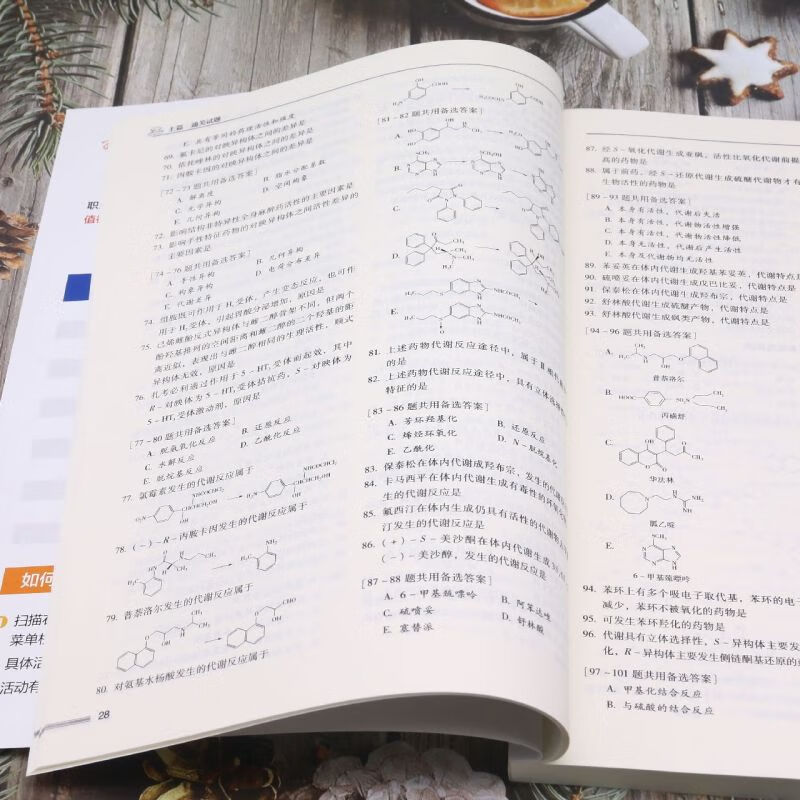 上篇 通关试题
E. 具有等同的药理活性和强度
69. 氟卡尼的对映异构体之间的差异是
70. 依托唑啉的对映异构体之间的差异是
71. 丙胺卡因的对映异构体之间的差异是
[72~73题共用备选答案]
A. 解离度
B. 脂水分配系数
C. 光学异构
D. 空间构象
E. 几何异构
72. 影响结构非特异性全身麻醉药活性的主要因素是
73. 影响手性特征药物的对映异构体之间活性差异的
主要因素是
[74~76题共用备选答案]
A. 手性异构
B. 几何异构
C. 构象异构
D. 电荷分布差异
E. 代谢差异
74. 组胺既可作用于H₁受体，产生变态反应，也可作
用于H₂受体，引起胃酸分泌增加，原因是
75. 己烯雌酚反式异构体与雌二醇骨架不同，但两个
酚羟基排列的空间距离和雌二醇的二个羟基的距
离近似，表现出与雌二醇相同的生理活性，顺式
异构体无效，原因是
76. 扎考必利通过作用于5-HT₃受体而起效，其中
R-对映体为5-HT₃受体拮抗药，S-对映体为
5-HT₃受体激动剂，原因是
[77~80题共用备选答案]
A. 脱氨氧化反应
B. 还原反应
C. 水解反应
D. 乙酰化反应
E. 脱烷基反应
77. 氯霉素发生的代谢反应属于
78. (-)-R-丙胺卡因发生的代谢反应属于
79. 普萘洛尔发生的代谢反应属于
80. 对氨基水杨酸发生的代谢反应属于
28
[81~82题共用备选答案]
A.
B.
C.
D.
E.
81. 上述药物代谢反应途径中，属于Ⅱ相代
的是
82. 上述药物代谢反应途径中，具有立体选择
特征的是
[83~86题共用备选答案]
A. 芳环羟基化
B. 还原反应
C. 烯烃环氧化
D. N-脱烷基化
E. 乙酰化
83. 保泰松在体内代谢成羟布宗，发生的代谢反
84. 卡马西平在体内代谢生成有毒性的环氧化
生的代谢反应是
85. 氟西汀在体内生成仍具有活性的代谢物
汀发生的代谢反应是
86. (+)-S-美沙酮在体内代谢生成
(-)-美沙醇，发生的代谢反应是
[87~88题共用备选答案]
A. 6-甲基巯嘌呤
B. 阿苯达唑
C. 硫喷妥
D. 舒林酸
E. 塞替派
87. 经S-氧化代谢生成亚砜，活性比氧化代谢前提
高的药物是
88. 属于前药，经S-还原代谢生成硫醚代谢物才有
生物活性的药物是
[89~93题共用备选答案]
A. 本身有活性，代谢后失活
B. 本身有活性，代谢物活性增强
C. 本身有活性，代谢物活性降低
D. 本身无活性，代谢后产生活性
E. 本身及代谢物均无活性
89. 苯妥英在体内代谢生成羟基苯妥英，代谢特点是
90. 硫喷妥在体内代谢生成戊巴比妥，代谢特点是
91. 保泰松在体内代谢生成羟布宗，代谢特点是
92. 舒林酸在体内代谢生成硫醚产物，代谢特点是
93. 舒林酸在体内代谢生成砜类产物，代谢特点是
[94~96题共用备选答案]
A.
普萘洛尔
B.
丙磺舒
C.
华法林
D.
胍乙啶
E.
6-甲基巯嘌呤
94. 苯环上有多个吸电子取代基，苯环的电子
减少，苯环不被氧化的药物是
95. 可发生苯环羟化的药物是
96. 代谢具有立体选择性，S-异构体主要发
化，R-异构体主要发生侧链酮基还原的药
[97~101题共用备选答案]
A. 甲基化结合反应
B. 与硫酸的结合反应
职
值
如何
扫描
菜单
具体活
活动有